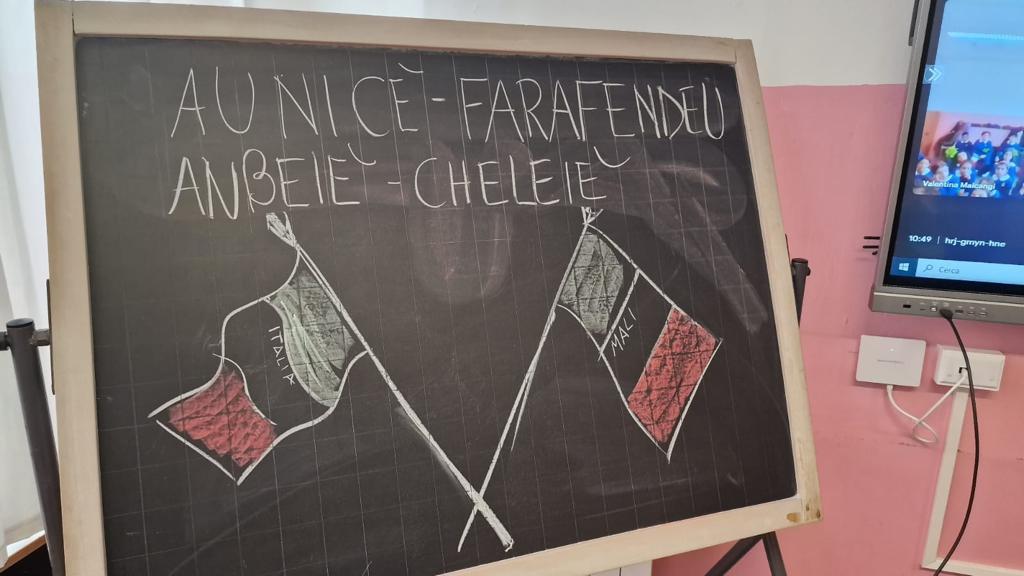 AU NICĔ - FARAFENDEU
ANBEIĔ - CHELEIĔ
ITALIA
MALI
Valentina Malcangi
10:49 | hrj-gmyn-hne
Cerca